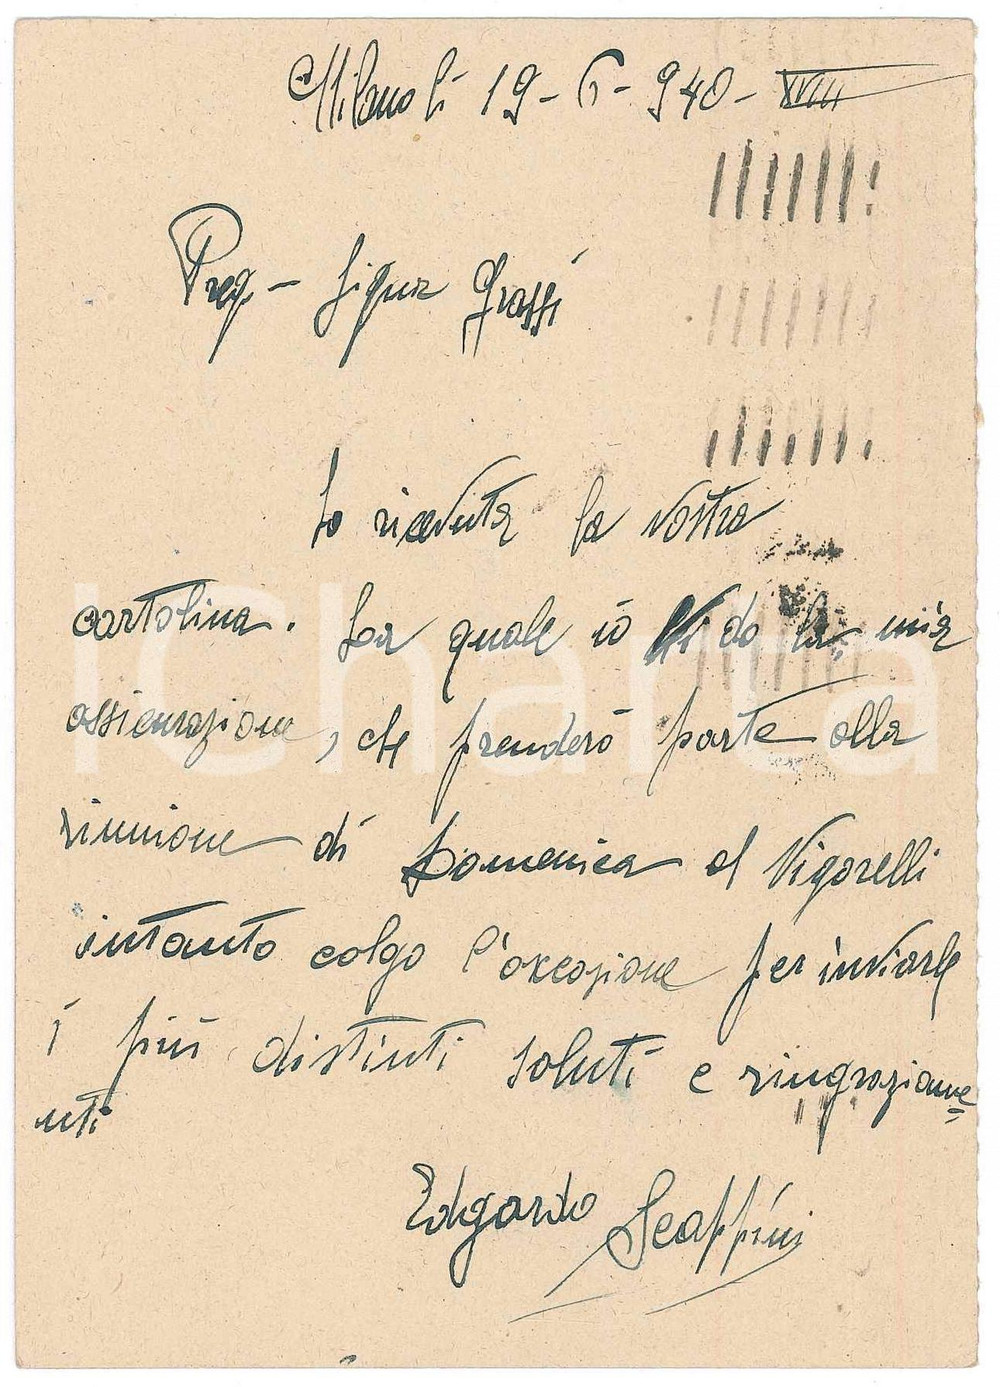 Milano lì 19-6-940-XVIII
Preg- Signor Grassi
Io ricevuta la vostra
cartolina. La quale io Vi do la mia
assicurazione, che prenderò parte alla
riunione di Domenica al Vigorelli
intanto colgo l'occasione per inviarle
i più distinti saluti e ringraziame=
nti
Edgardo Scappini